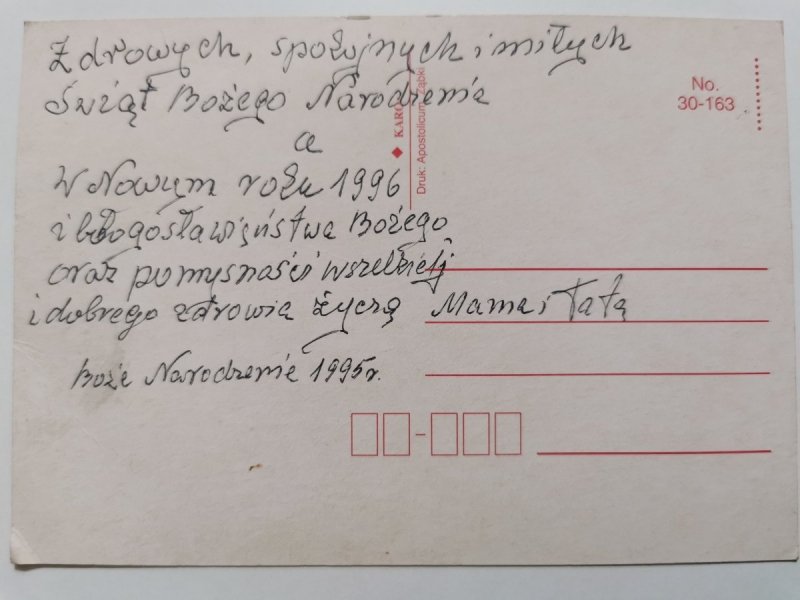 Zdrowych, spokojnych i miłych
Świąt Bożego Narodzenia
a
w Nowym roku 1996
i błogosławieństwa Bożego
oraz pomysności wszelkiej
i dobrego zdrowia życzą Mama i Tata
Boże Narodzenie 1995r.
KARO
Druk: Apostolicum Ząbki
No.
30-163